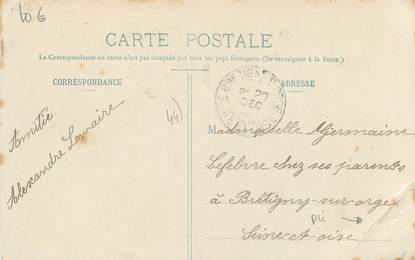 10.G
CARTE POSTALE
La Correspondance au recto n'est pas acceptée par tous les pays étrangers. (Se renseigner à la Poste.)
CORRESPONDANCE
ADRESSE
BRETIGNY
21 20
DEC
44)
Amitié
Alexandre Lemaire
Mademoiselle Germaine
Lefebvre chez ses parents
à Brétigny-sur-orge
pli →
Seine-et-oise